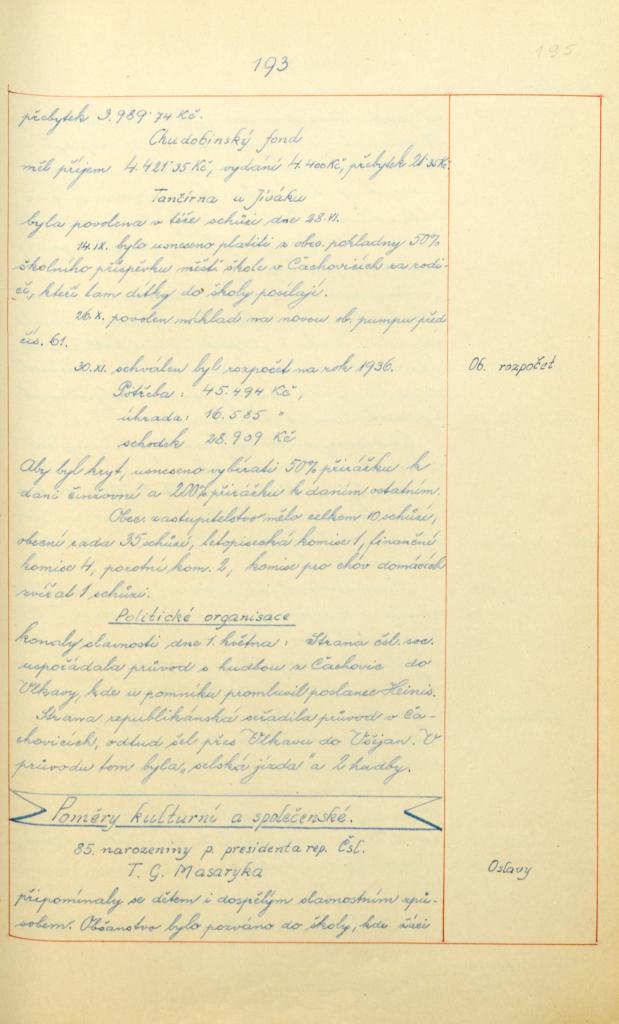 195
193
přebytek 3.989·74 Kč.
Chudobinský fond
měl příjem 4.421·35 Kč, vydání 4.400 Kč, přebytek 21·35 Kč
Tančírna u Jiváku
byla povolena v téže schůzi dne 28.VI.
14.IX. bylo usneseno platiti z obec. pokladny 50%
školního příspěvku měšť. škole v Čachovicích za rodi-
če, kteří tam dítky do školy posílají.
26.X. povolen náklad na novou ob. pumpu před
čís. 61.
30.XI. schválen byl rozpočet na rok 1936.
Ob. rozpočet
Potřeba: 45.494 Kč,
úhrada: 16.585 "
schodek 28.909 Kč
Aby byl kryt, usneseno vybírati 50% přirážku k
dani činžovní a 200% přirážku k daním ostatním.
Obec. zastupitelstvo mělo celkem 10 schůzí,
obecní rada 35 schůzí, letopisecká komise 1, finanční
komise 4, porotní kom. 2, komise pro chov domácích
zvířat 1 schůzi.
Politické organisace
konaly slavnosti dne 1. května: Strana čsl. soc.
uspořádala průvod s hudbou z Čachovic do
Vlkavy, kde u pomníku promluvil poslanec Heinis.
Strana republikánská seřadila průvod v Ča-
chovicích, odtud šel přes Vlkavu do Všejan. V
průvodu tom byla „selská jízda" a 2 hudby.
Poměry kulturní a společenské.
85. narozeniny p. presidenta rep. Čsl.
T. G. Masaryka
Oslavy
připomínaly se dětem i dospělým slavnostním způ-
sobem. Občanstvo bylo pozváno do školy, kde žáci